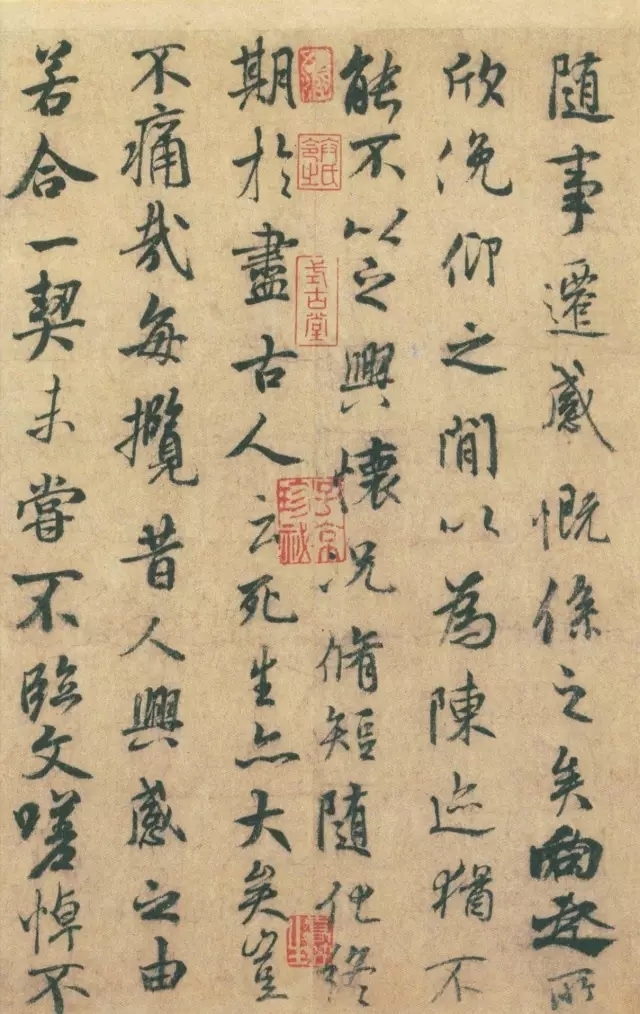 随事遷感慨係之矣向之所
欣俛仰之閒以為陳迹猶不
能不以之興懷況脩短随化終
期於盡古人云死生亦大矣豈
不痛哉每攬昔人興感之由
若合一契未嘗不臨文嗟悼不
式古堂
子京
珍祕